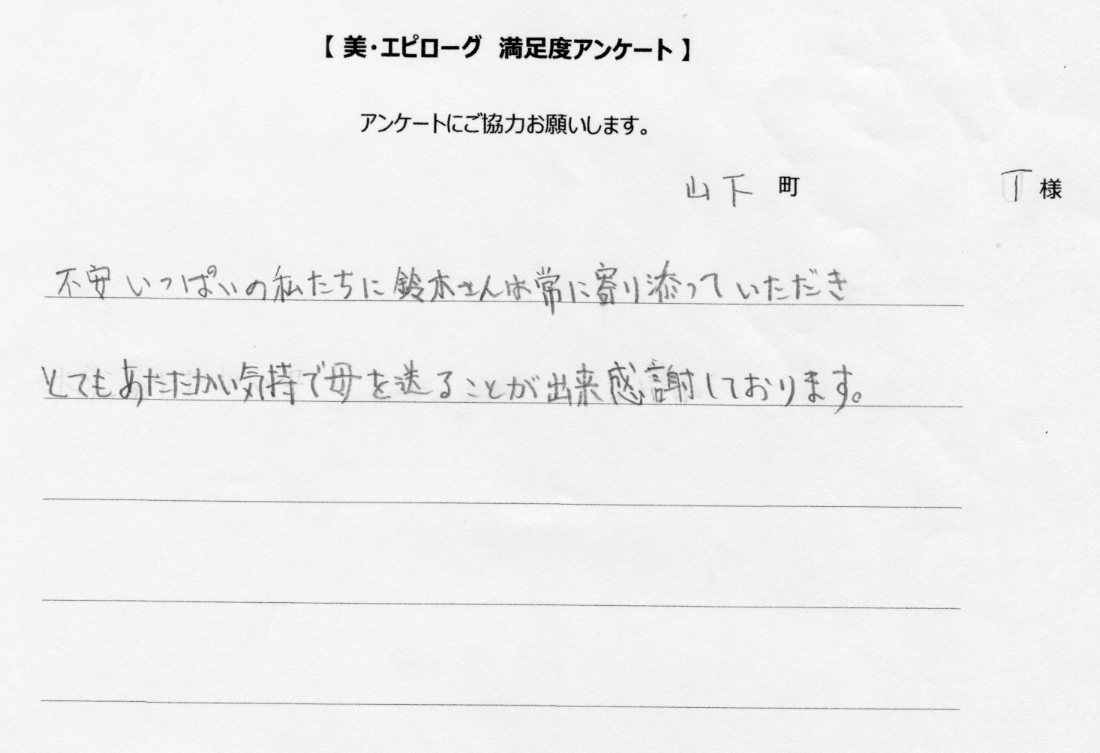 【 美・エピローグ 満足度アンケート 】
アンケートにご協力お願いします。
山下 町 T 様
不安いっぱいの私たちに鈴木さんは常に寄り添っていただき
とてもあたたかい気持で母を送ることが出来感謝しております。